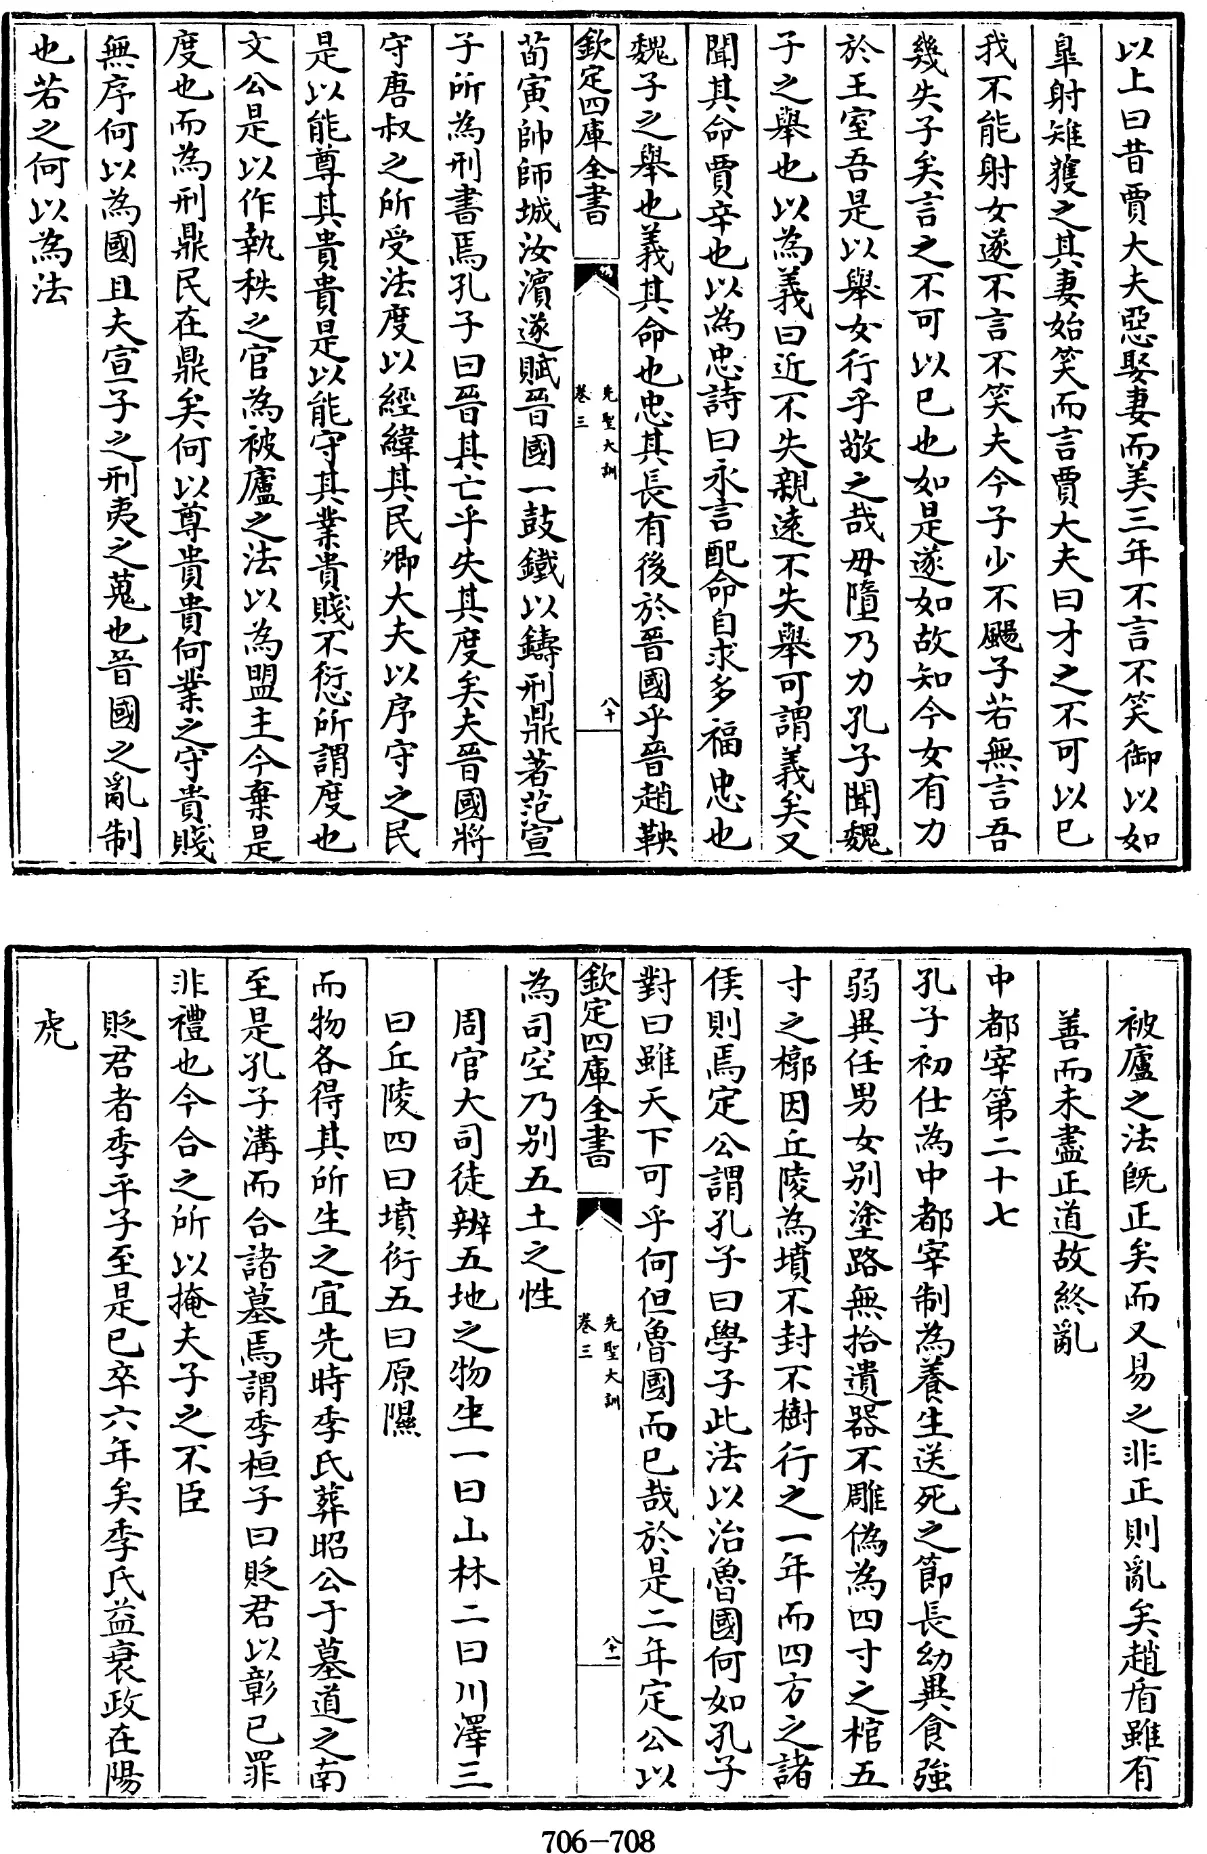 以上曰昔賈大夫惡娶妻而美三年不言不笑御以如
臯射雉獲之其妻始笑而言賈大夫曰才之不可以已
我不能射女遂不言不笑夫今子少不颺子若無言吾
幾失子矣言之不可以已也如是遂如故知今女有力
於王室吾是以舉女行乎敬之哉毋墮乃力孔子聞魏
子之舉也以為義曰近不失親遠不失舉可謂義矣又
聞其命賈辛也以為忠詩曰永言配命自求多福忠也
魏子之舉也義其命也忠其長有後於晉國乎晉趙鞅
欽定四庫全書 先聖大訓 卷三 八十
荀寅帥師城汝濱遂賦晉國一鼓鐵以鑄刑鼎著范宣
子所為刑書焉孔子曰晉其亡乎失其度矣夫晉國將
守唐叔之所受法度以經緯其民卿大夫以序守之民
是以能尊其貴貴是以能守其業貴賤不愆所謂度也
文公是以作執秩之官為被廬之法以為盟主今棄是
度也而為刑鼎民在鼎矣何以尊貴貴何業之守貴賤
無序何以為國且夫宣子之刑夷之蒐也晉國之亂制
也若之何以為法
被廬之法旣正矣而又易之非正則亂矣趙盾雖有
善而未盡正道故終亂
中都宰第二十七
孔子初仕為中都宰制為養生送死之節長幼異食強
弱異任男女別塗路無拾遺器不雕偽為四寸之棺五
寸之槨因丘陵為墳不封不樹行之一年而四方之諸
侯則焉定公謂孔子曰學子此法以治魯國何如孔子
對曰雖天下可乎何但魯國而已哉於是二年定公以
欽定四庫全書 先聖大訓 卷三 八十一
為司空乃別五土之性
周官大司徒辨五地之物生一曰山林二曰川澤三
曰丘陵四曰墳衍五曰原隰
而物各得其所生之宜先時季氏葬昭公于墓道之南
至是孔子溝而合諸墓焉謂季桓子曰貶君以彰己罪
非禮也今合之所以掩夫子之不臣
貶君者季平子至是已卒六年矣季氏益衰政在陽
虎
706-708